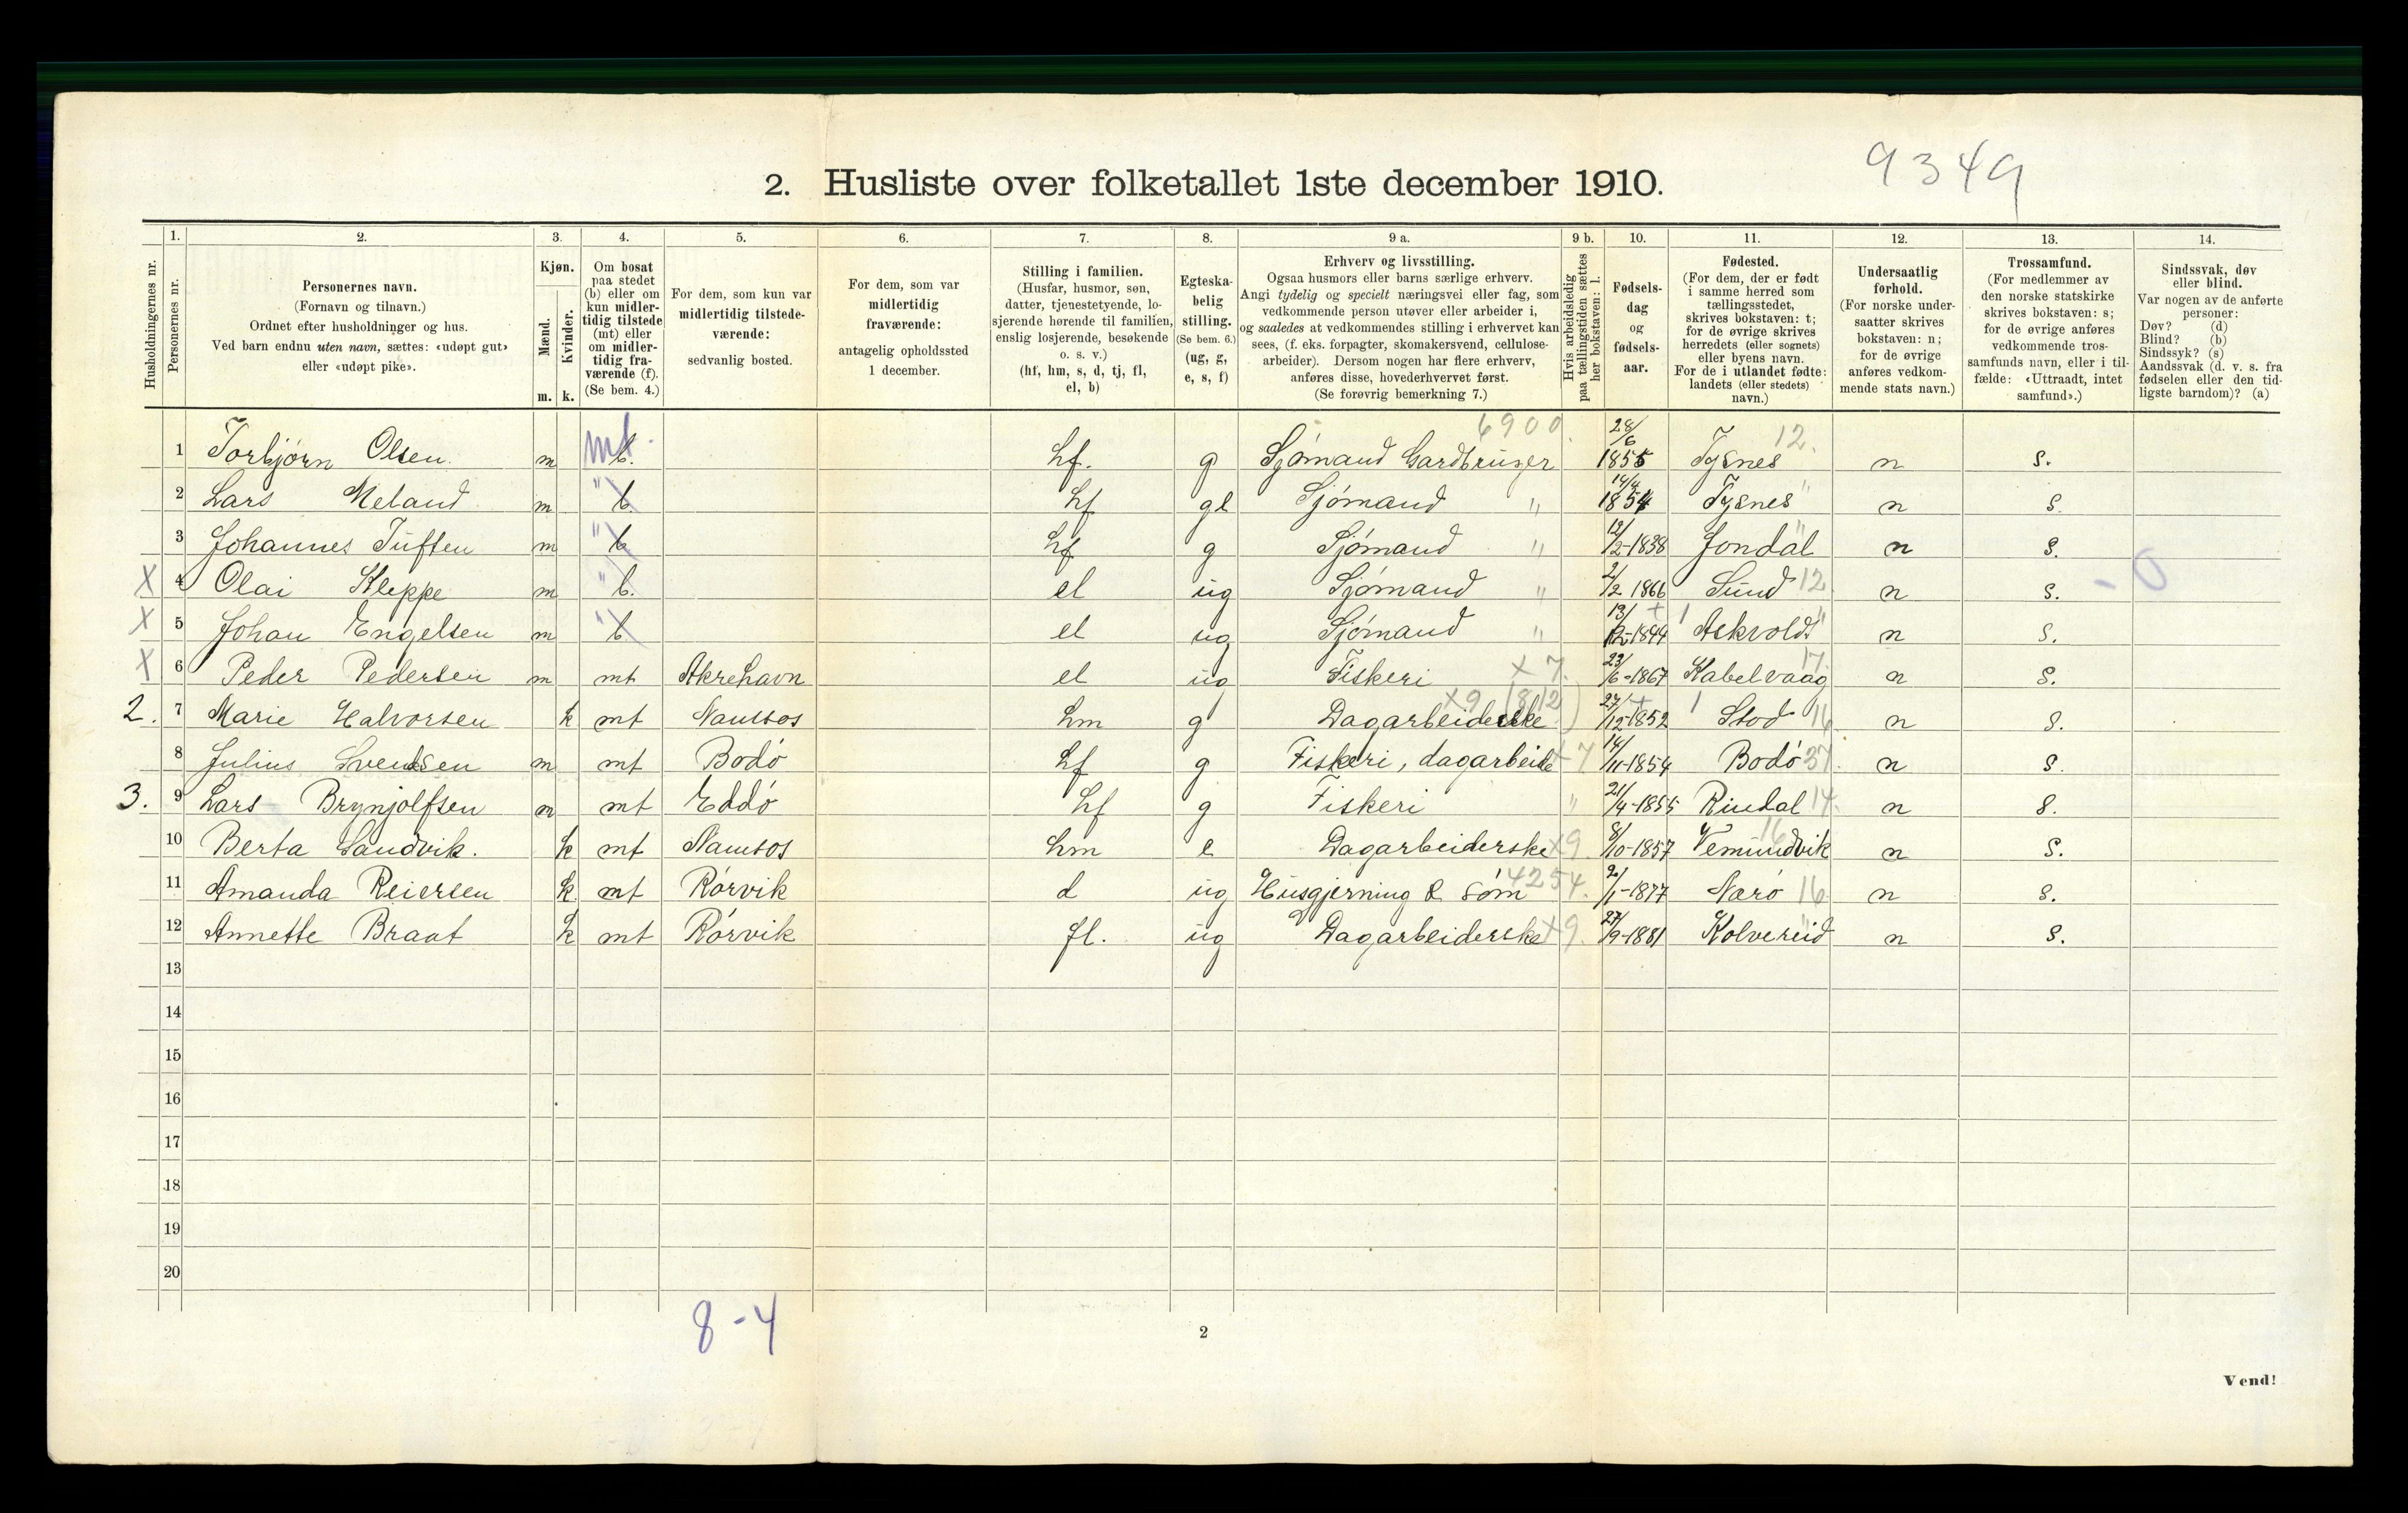 9349
2. Husliste over folketallet 1ste december 1910.
Husholdningernes nr.
1. Personernes nr.
2. Personernes navn. (Fornavn og tilnavn.) Ordnet efter husholdninger og hus. Ved barn endnu uten navn, sættes: «udøpt gut» eller «udøpt pike».
3. Kjøn. Mænd. m. Kvinder. k.
4. Om bosat paa stedet (b) eller om kun midlertidig tilstede (mt) eller om midlertidig fraværende (f). (Se bem. 4.)
5. For dem, som kun var midlertidig tilstedeværende: sedvanlig bosted.
6. For dem, som var midlertidig fraværende: antagelig opholdssted 1 december.
7. Stilling i familien. (Husfar, husmor, søn, datter, tjenestetyende, losjerende hørende til familien, enslig losjerende, besøkende o. s. v.) (hf, hm, s, d, tj, fl, el, b)
8. Egteskabelig stilling. (Se bem. 6.) (ug, g, e, s, f)
9 a. Erhverv og livsstilling. Ogsaa husmors eller barns særlige erhverv. Angi tydelig og specielt næringsvei eller fag, som vedkommende person utøver eller arbeider i, og saaledes at vedkommendes stilling i erhvervet kan sees, (f. eks. forpagter, skomakersvend, cellulosearbeider). Dersom nogen har flere erhverv, anføres disse, hovederhvervet først. (Se forøvrig bemerkning 7.)
9 b. Hvis arbeidsledig paa tællingstiden sættes her bokstaven: l.
10. Fødselsdag og fødselsaar.
11. Fødested. (For dem, der er født i samme herred som tællingsstedet, skrives bokstaven: t; for de øvrige skrives herredets (eller sognets) eller byens navn. For de i utlandet fødte: landets (eller stedets) navn.)
12. Undersaatlig forhold. (For norske undersaatter skrives bokstaven: n; for de øvrige anføres vedkommende stats navn.)
13. Trossamfund. (For medlemmer av den norske statskirke skrives bokstaven: s; for de øvrige anføres vedkommende trossamfunds navn, eller i tilfælde: «Uttraadt, intet samfund».)
14. Sindssvak, døv eller blind. Var nogen av de anførte personer: Døv? (d) Blind? (b) Sindssyk? (s) Aandssvak (d. v. s. fra fødselen eller den tidligste barndom)? (a)
1 Torbjørn Olsen m mt b. hf. g Sjømand Gardbruger 6900 28/6 1855 Tysnes 12. n s.
2 Lars Meland m " b hf gl Sjømand " 14/4 1854 Tysnes " n s.
3 Johannes Tuften m " b hf g Sjømand " 12/2-1838 Jondal " n s.
X 4 Olai Kleppe m " b. el ug Sjømand " 2/2 1866 Sund 12 n s. - 0
X 5 Johan Engelsen m " b el ug Sjømand " 13/12-1844 Askvold " n s.
X 6 Peder Pedersen m mt Akrehavn el ug Fiskeri x 7. 23/6-1867 Kabelvaag 17. n s.
2. 7 Marie Halvorsen k mt Namsos hm g Dagarbeiderske x9 (812) 27/12-1852 Stod 16 n s.
8 Julius Svendsen m mt Bodø hf g Fiskeri, dagarbeide x 7 14/11-1854 Bodø 37. n s.
3. 9 Lars Brynjolfsen m mt Eddø hf g Fiskeri " 21/4-1855 Rindal 14. n s.
10 Berta Sandvik. k mt Namsos hm e Dagarbeiderske x9 8/10-1857 Vemundvik 16 n s.
11 Amanda Reiersen k mt Rørvik d ug Husgjerning & søm 4254. 2/1-1877 Nærø 16 n s.
12 Annette Braat k mt Rørvik fl. ug Dagarbeiderske x9. 27/9-1881 Kolvereid " n s.
13
14
15
16
17
18
19
20
8-4
2
Vend!